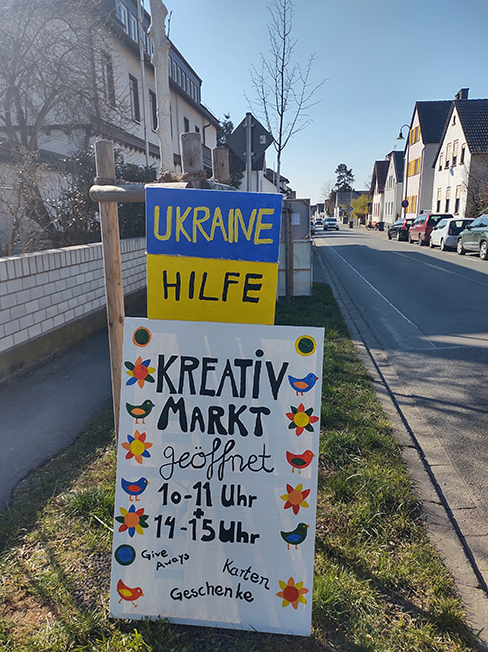 UKRAINE
HILFE
KREATIV
MARKT
geöffnet
10-11 Uhr
+
14-15 Uhr
Give
Aways
Karten
Geschenke